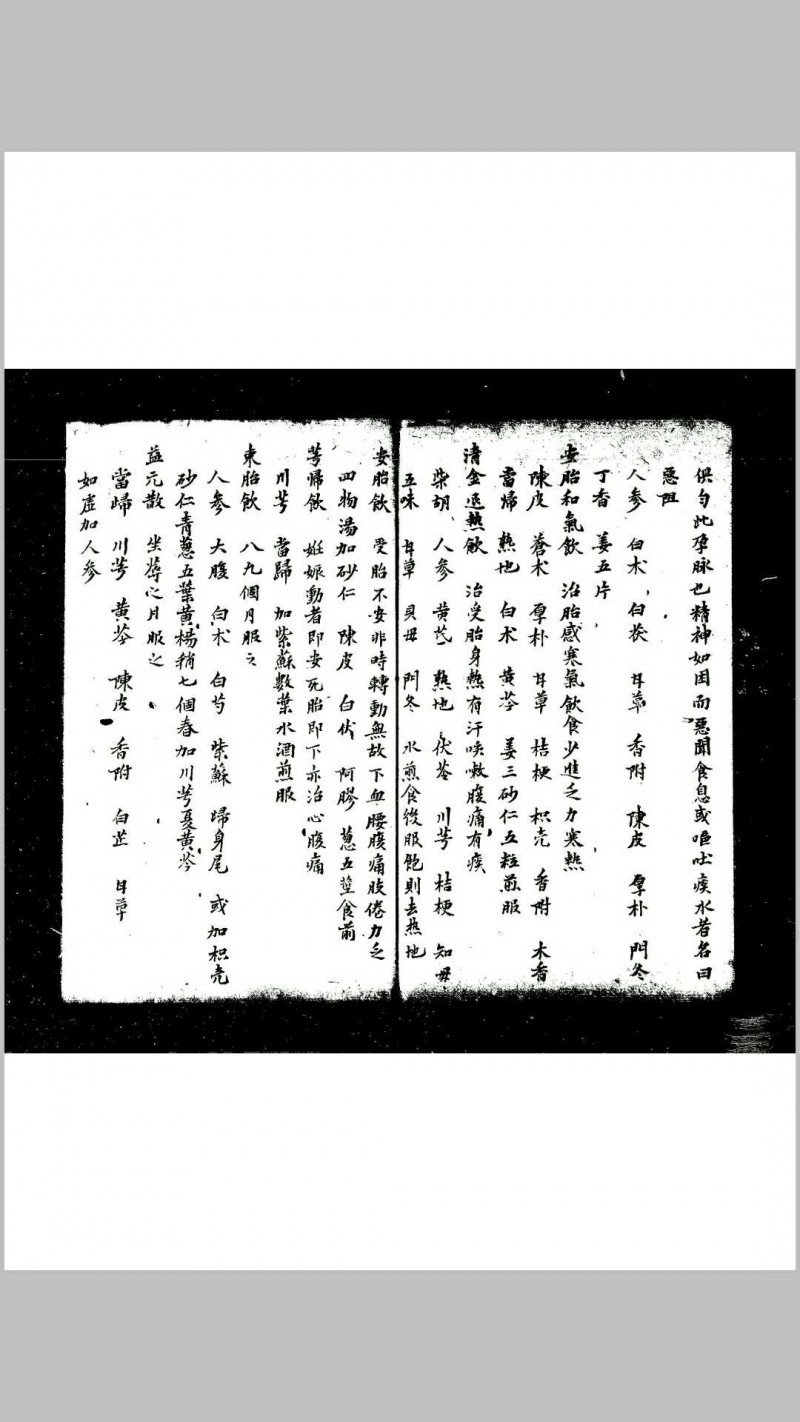 俱勻此孕脉也精神如困而惡聞食息或嘔吐痰水者名曰
惡阻
人參 白朮 白茯 甘草 香附 陳皮 厚朴 門冬
丁香 姜五片
安胎和氣飲 治胎感寒氣飲食少進乏力寒熱
陳皮 蒼朮 厚朴 甘草 桔梗 枳壳 香附 木香
當歸 熱地 白朮 黄芩 姜三砂仁五粒煎服
清金退熱飲 治受胎身熱有汗咳嗽腹痛有痰
柴胡 人參 黄芪 熱地 茯苓 川芎 桔梗 知母
五味 甘草 貝母 門冬 水煎食後服飽則去熱地
安胎飲 受胎不安非時轉動無故下血腰腹痛肢倦力乏
四物湯加砂仁 陳皮 白伏 阿膠 葱五莖食前
芎歸飲 妊娠動者即安死胎即下亦治心腹痛
川芎 當歸 加紫蘇數葉水酒煎服
束胎飲 八九個月服之
人參 大腹 白朮 白芍 紫蘇 歸身尾 或加枳壳
砂仁青葱五葉黄楊稍七個春加川芎夏黄芩
益元散 坐蓐之月服之
當歸 川芎 黄芩 陳皮 香附 白芷 甘草
如虛加人參